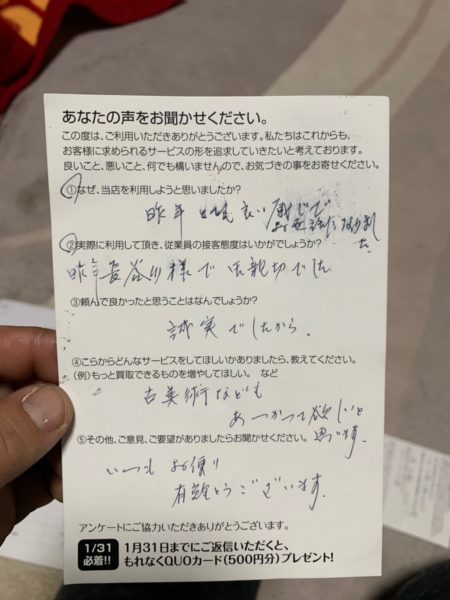 あなたの声をお聞かせください。
この度は、ご利用いただきありがとうございます。私たちはこれからも、
お客様に求められるサービスの形を追求していきたいと考えております。
良いこと、悪いこと、何でも構いませんので、お気づきの事をお寄せください。
①なぜ、当店を利用しようと思いましたか?
昨年 とても良い
お世話になりまし
た
②実際に利用して頂き、従業員の接客態度はいかがでしょうか?
昨年 長谷川様で 親切でした
③頼んで良かったと思うことはなんでしょうか?
誠実でしたから。
④こらからどんなサービスをしてほしいかありましたら、教えてください。
(例)もっと買取できるものを増やしてほしい。 など
古美術なども
あつかって欲しいと
思います。
⑤その他、ご意見、ご要望がありましたらお聞かせください。
いつも お便り
有難とうございます。
アンケートにご協力いただきありがとうございます。
1/31
必着!!
1月31日までにご返信いただくと、
もれなくQUOカード(500円分)プレゼント!